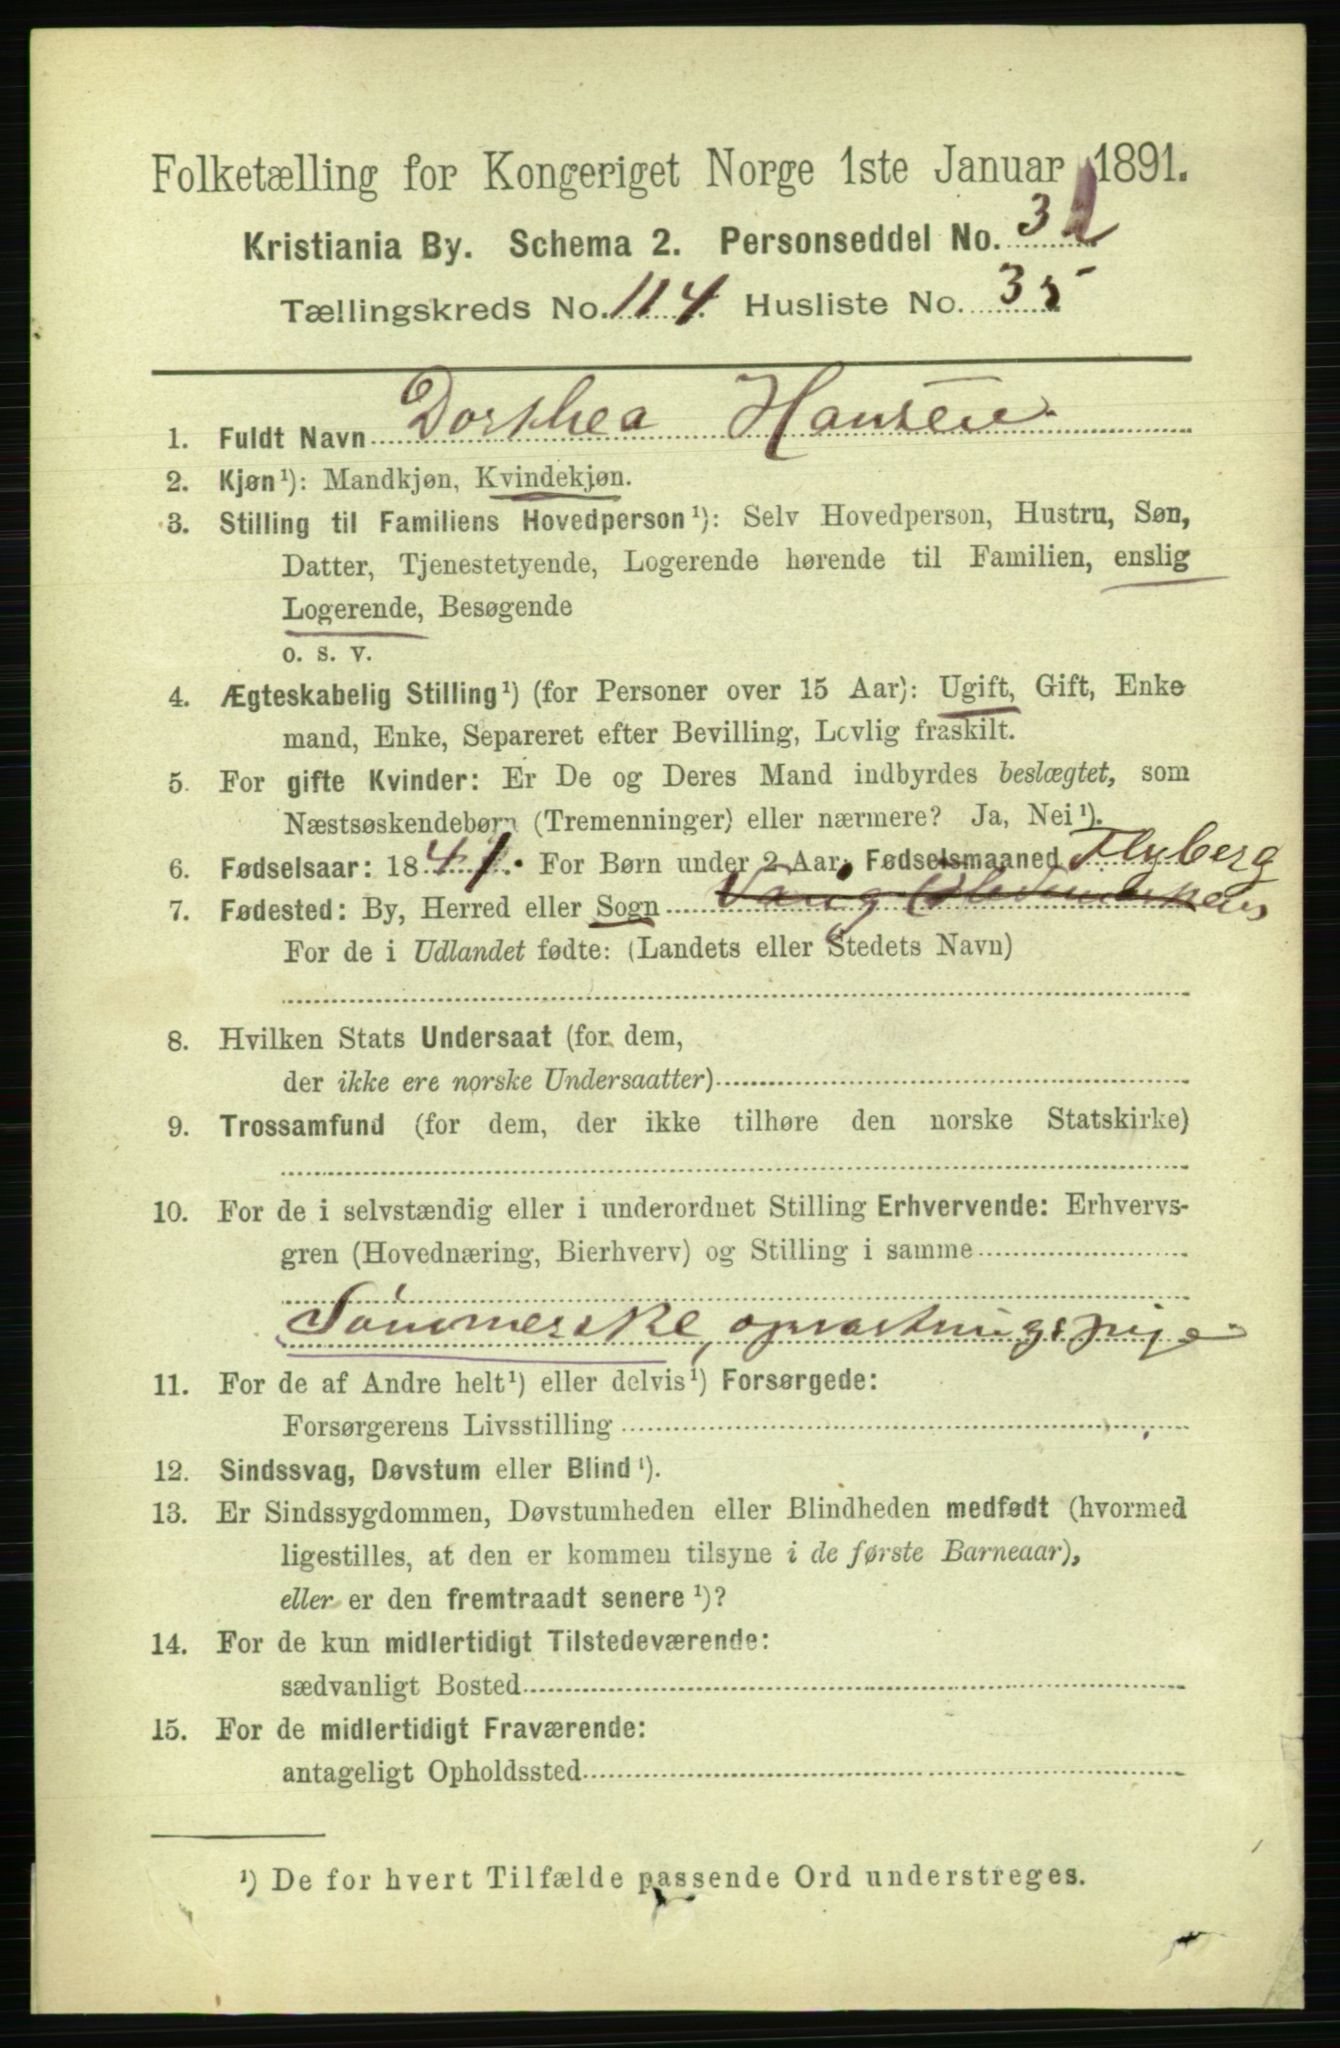 Folketælling for Kongeriget Norge 1ste Januar 1891.
Kristiania By. Schema 2. Personseddel No. 32
Tællingskreds No. 114. Husliste No. 35
1. Fuldt Navn Dorthea Hansen
2. Kjøn¹): Mandkjøn, Kvindekjøn.
3. Stilling til Familiens Hovedperson¹): Selv Hovedperson, Hustru, Søn,
Datter, Tjenestetyende, Logerende hørende til Familien, enslig
Logerende, Besøgende
o. s. v.
4. Ægteskabelig Stilling¹) (for Personer over 15 Aar): Ugift, Gift, Enke
mand, Enke, Separeret efter Bevilling, Lovlig fraskilt.
5. For gifte Kvinder: Er De og Deres Mand indbyrdes beslægtet, som
Næstsøskendebørn (Tremenninger) eller nærmere? Ja, Nei¹).
6. Fødselsaar: 1841. For Børn under 2 Aar: Fødselsmaaned Flyberg
7. Fødested: By, Herred eller Sogn Vang
For de i Udlandet fødte: (Landets eller Stedets Navn)
8. Hvilken Stats Undersaat (for dem,
der ikke ere norske Undersaatter)
9. Trossamfund (for dem, der ikke tilhøre den norske Statskirke)
10. For de i selvstændig eller i underordnet Stilling Erhvervende: Erhvervs-
gren (Hovednæring, Bierhverv) og Stilling i samme
Sømmerske, opvartningspige
11. For de af Andre helt¹) eller delvis¹) Forsørgede:
Forsørgerens Livsstilling
12. Sindssvag, Døvstum eller Blind¹).
13. Er Sindssygdommen, Døvstumheden eller Blindheden medfødt (hvormed
ligestilles, at den er kommen tilsyne i de første Barneaar),
eller er den fremtraadt senere¹)?
14. For de kun midlertidigt Tilstedeværende:
sædvanligt Bosted
15. For de midlertidigt Fraværende:
antageligt Opholdssted
¹) De for hvert Tilfælde passende Ord understreges.